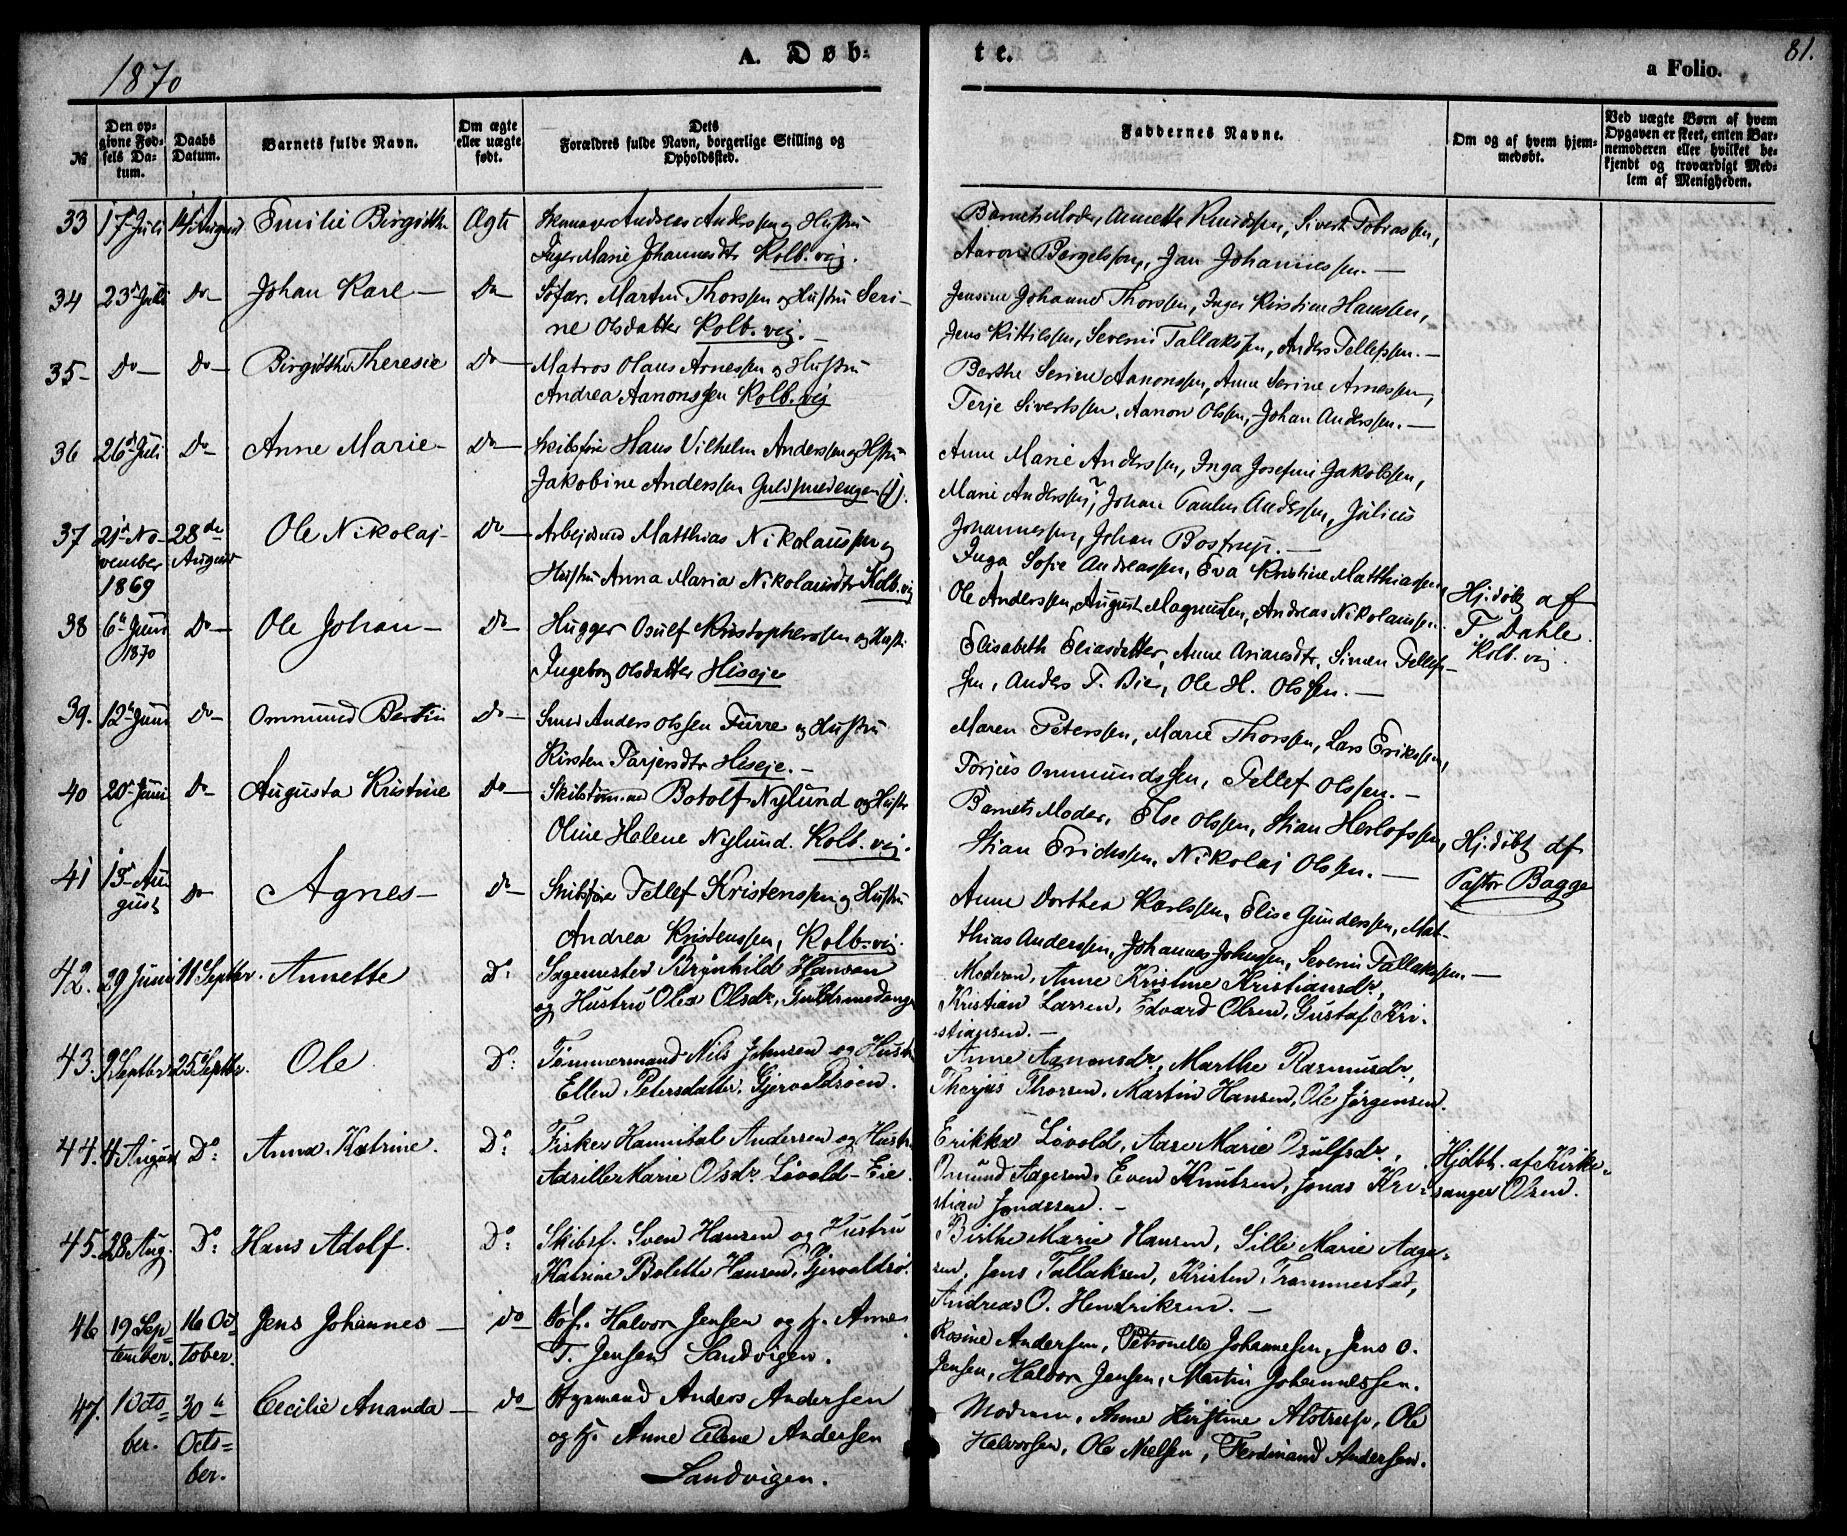 1870
A. Døb-
te.
81.
a Folio.
№
Den op-
givne Fød-
sels Da-
tum.
Daabs
Datum.
Barnets fulde Navn.
Om ægte
eller uægte
født.
Dets
Forældres fulde Navn, borgerlige Stilling og
Opholdssted.
Faddernes Navne.
Om og af hvem hjem-
medøbt.
Ved uægte Børn af hvem
Opgaven er skeet, enten Bar-
nemoderen eller hvilket be-
kjendt og troværdigt Med-
lem af Menigheden.
33 17 Juli 14 August Emilie Birgitthe Ægte Andreas Anderssen og Hustru
Inger Marie Johannesdtr Kolb.vig.
Barnets Moder, Annette Knudssen, Sivert Tobiassen,
Aaron Bergelssen, Jan Johannessen. —
34 23 Juli Do — Johan Karl — Do — Søfar. Martin Thorssen og Hustru Seri-
ne Olsdatter Kolb.vig. —
Jensine Johanne Thorssen, Inger Kirstine Hanssen,
Jens Kittilssen, Severin Tallakssen, Anders Tellefssen. —
35 — Do — Do — Birgitthe Theresie Do — Matros Olaus Arnessen og Hustru
Andrea Aanonssen Kolb.vig
Berthe Serine Aanonssen, Anne Serine Arnessen,
Terje Sivertssen, Aanon Olssen, Johan Anderssen. —
36 26 Juli Do — Anne Marie — Do — Skibsfører Hans Vilhelm Anderssen og Hstru
Jakobine Anderssen Guldsmedengen
Anne Marie Anderssen, Inga Josefine Jakobssen,
Marie Anderssen, Johan Paulus Anderssen, Julius
Johannessen, Johan Bostrup. —
37 21 No-
vember
1869 28de
August Ole Nikolaj — Do — Arbejdsmd Matthias Nikolaussen og
Hustru Anna Maria Nikolausdtr Kolb.vig
Inga Sofie Andreassen, Eva Kristine Matthiassen,
Ole Anderssen, August Magnussen, Andreas Nikolaussen.
38 6 Juni
1870 Do — Ole Johan — Do — Hugger Osulf Kristopherssen og Hustr.
Ingeborg Olsdatter Hisøje
Elisabeth Eliasdatter, Anne Arianesdtr, Simen Tellef-
sen, Anders T. Bie, Ole H. Olssen. —
Hj.døbt af
T. Dahle
Kolb.vig.
39. 12 Juni Do — Ommund Bertin Do — Smed Anders Olssen Furre og Hustru
Kirsten Tarjersdtr Hisøje. —
Maren Peterssen, Marie Thorssen, Lars Erikssen,
Torjus Ommundssen, Tellef Olssen. —
40 20 Juni Do — Augusta Kristine Do — Skibstømmd Botolf Nylund og Hustr
Oline Helene Nylund. Kolb.vig.
Barnets Moder, Else Olssen, Stian Herlofssen,
Stian Erichssen, Nikolaj Olssen. —
41 15 Au-
gust Do — Agnes — Do — Skibsfører Tellef Kristenssen og Hustru
Andrea Kristenssen, Kolb.vig.
Anne Dorthea Karlssen, Elise Gunderssen, Mat-
thias Anderssen, Johannes Johnssen, Severin Tallakssen. —
Hj.døbt af
Pastor Bagge
42. 29 Juni 11 Septbr. Annette Do: Sagemester Brynhild Hansen
og Hustru Olea Olsdr, Guldsmedenge
Moderen, Anne Kristine Kristiansdr,
Kristian Larsen, Edvard Olsen, Gustaf Kri-
stiansen. —
43. 9 Septbr 25 Septbr. Ole Do: Tømmermand Nils Johnsen og Hustr
Ellen Petersdatter, Gjervoldsøen.
Anne Aanonsdr, Marthe Rasmusdr,
Therjus Thorsen, Martin Hansen, Ole Jørgensen.
44. 4 August Do: Anna Katrine. Do: Fisker Hannibal Andersen og Hustr
Aasille Marie Olsdr Løvold-Eie.
Erikka Løvold, Aase Marie Osulfsdr,
Omund Aagesen, Even Knutsen, Jonas Kri-
stian Jonassen. —
Hjdbt. af Kirke-
sanger Olsen.
45. 28 Aug. Do: Hans Adolf. Do: Skibsf. Sven Hansen og Hustru
Katrine Bolette Hansen, Gjervoldsø.
Birthe Marie Hansen, Sille Marie Aage-
sen, Jens Tallaksen, Kristen Trommestad,
Andreas O. Hendriksen. —
46 19 Sep-
tember. 16 Oc-
tober. Jens Johannes — do — Søf. Halvor Jensen og h. Anne
T. Jensen Sandvigen.
Rosine Andersen, Petronelle Johannesen, Jens O.
Jensen, Halvor Jensen, Martin Johannessen.
47. 1 Octo-
ber. 30te
Octo-
ber. Cecilie Ananda — do — Styrmand Anders Andersen
og h. Anne Elene Andersen
Sandvigen.
Moderen, Anne Kirstine Alstrup, Ole
Halvorsen, Ole Nielsen, Ferdinand Andersen.